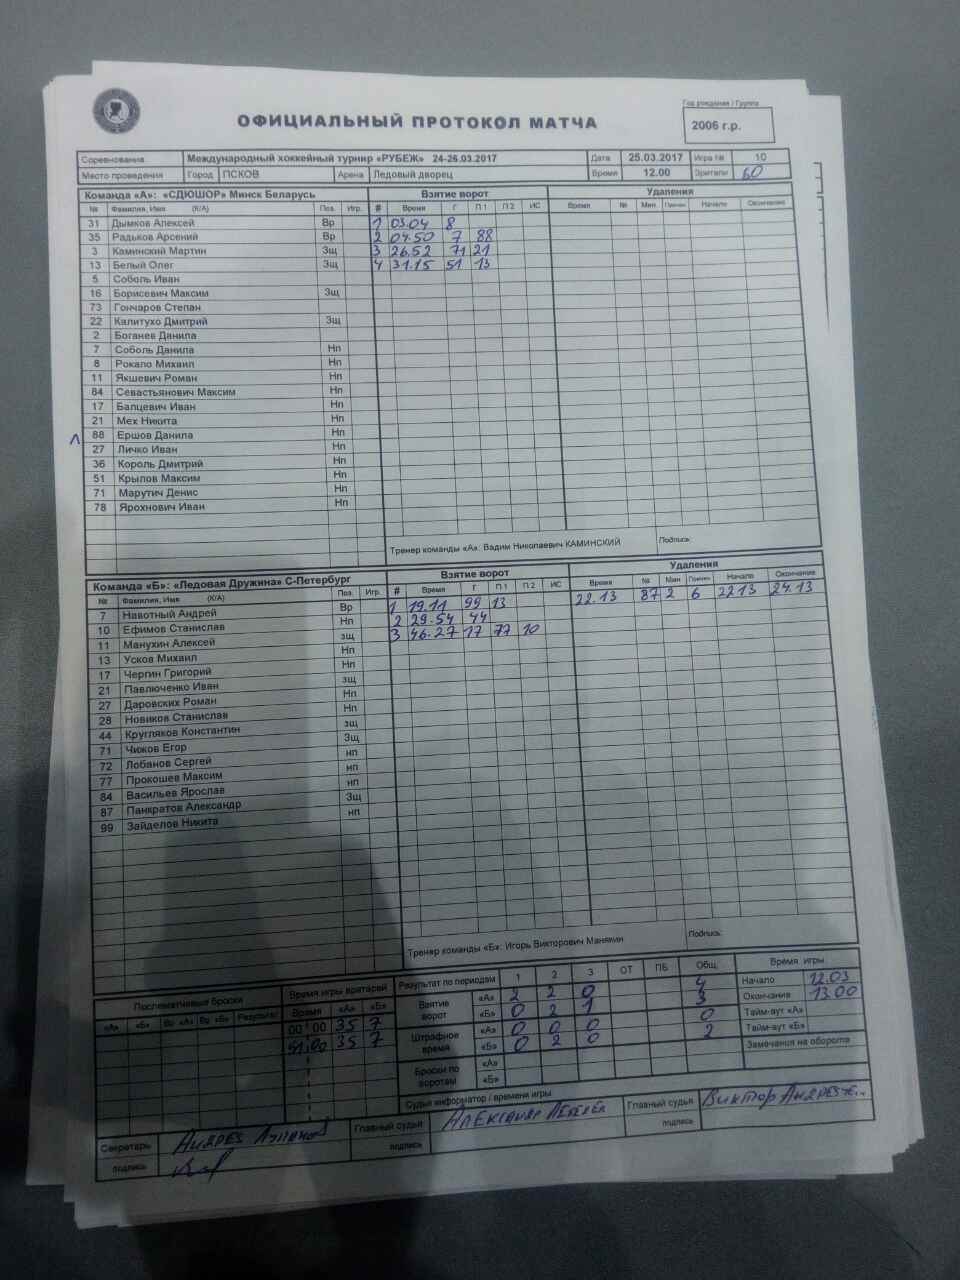 Год рождения / Группа
ОФИЦИАЛЬНЫЙ ПРОТОКОЛ МАТЧА
2006 г.р.
Соревнование Международный хоккейный турнир «РУБЕЖ» 24-26.03.2017 Дата 25.03.2017 Игра № 10
Место проведения Город ПСКОВ Арена Ледовый дворец Время 12.00 Зрители 60
Команда «А»: «СДЮШОР» Минск Беларусь Взятие ворот Удаления
№ Фамилия, Имя (К/А) Поз. Игр. # Время Г П 1 П 2 ИС Время № Мин Начало Окончание
31 Дымков Алексей Вр 1 03.04 8
35 Радьков Арсений Вр 2 04.50 7 88
3 Каминский Мартин Зщ 3 26.52 71 21
13 Белый Олег Зщ 4 31.15 51 13
5 Соболь Иван
16 Борисевич Максим Зщ
73 Гончаров Степан
22 Калитухо Дмитрий Зщ
2 Боганев Данила
7 Соболь Данила Нп
8 Рокало Михаил Нп
11 Якшевич Роман Нп
84 Севастьянович Максим Нп
17 Балцевич Иван Нп
21 Мех Никита Нп
88 Ершов Данила Нп
27 Личко Иван Нп
36 Король Дмитрий Нп
51 Крылов Максим Нп
71 Марутич Денис Нп
78 Ярохнович Иван Нп
Тренер команды «А»: Вадим Николаевич КАМИНСКИЙ Подпись:
Команда «Б»: «Ледовая Дружина» С-Петербург Взятие ворот Удаления
№ Фамилия, Имя (К/А) Поз. Игр. # Время Г П 1 П 2 ИС Время № Мин Начало Окончание
7 Навотный Андрей Вр 1 19.11 99 13 22.13 87 2 6 22.13 24.13
10 Ефимов Станислав Нп 2 29.54 44
11 Манухин Алексей зщ 3 46.27 17 77 10
13 Усков Михаил Нп
17 Чергин Григорий Нп
21 Павлюченко Иван зщ
27 Даровских Роман Нп
28 Новиков Станислав Нп
44 Кругляков Константин зщ
71 Чижов Егор Зщ
72 Лобанов Сергей нп
77 Прокошев Максим нп
84 Васильев Ярослав нп
87 Панкратов Александр Зщ
99 Зайделов Никита нп
Тренер команды «Б»: Игорь Викторович Манякин Подпись:
Послематчевые броски Время игры вратарей Результат по периодам 1 2 3 ОТ ПБ Общ. Время игры
«А» «Б» Вр. «А» Вр. «Б» Результат Время «А» «Б»
Взятие ворот «А» 2 2 0 4 Начало 12.03
«Б» 0 2 1 3 Окончание 13.00
00 00 35 7
51.00 35 7
Штрафное время «А» 0 0 0 0 Тайм-аут «А»
«Б» 0 2 0 2 Тайм-аут «Б»
Броски по воротам «А» Замечания на обороте
«Б»
Судья информатор / времени игры
Секретарь Андрей
подпись
Главный судья Александр
подпись
Главный судья Виктор
подпись